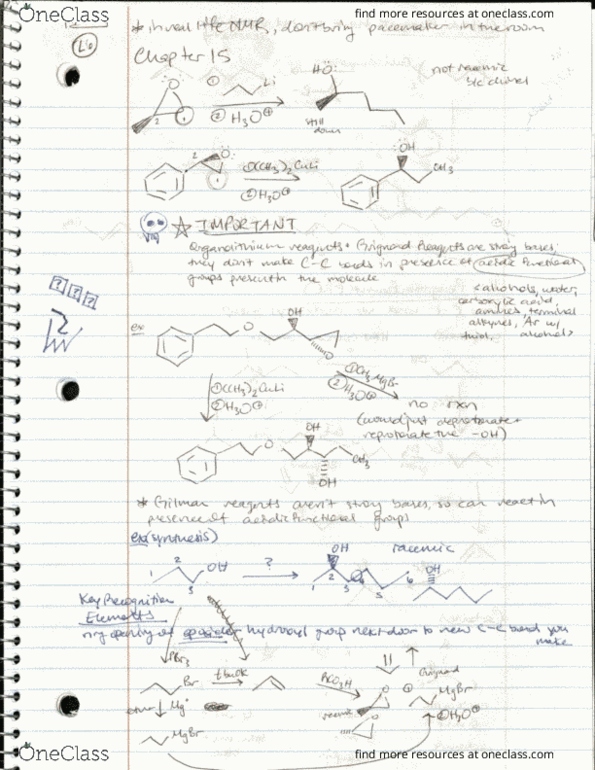 OneClass
find more resources at oneclass.com
* in real life NMR, don't bring pacemaker in the room
Chapter 15
① Li
② H₃O⊕
HÖ:
not racemic
b/c chiral
still
down
① (CH₃)₂CuLi
② H₃O⊕
:ÖH
CH₃
☆ IMPORTANT
Organolithium reagents + Grignard Reagents are strong bases,
they don't make C-C bonds in presence of acidic functional
groups present in the molecule
<alcohols, water,
carboxylic acid,
amines, terminal
alkynes, Ar w/
thiol, alcohol>
ex
OH
O
① CH₃MgBr
② H₃O⊕
① (CH₃)₂CuLi
② H₃O⊕
no rxn
(would just deprotonate +
reprotonate the -OH)
OH
O
CH₃
OH
* Gilman reagents aren't strong bases, so can react in
presence of acidic functional groups
ex (synthesis)
OH
?
OH
racemic
OH
Key Recognition
Elements
ring opening of epoxide: hydroxyl group next door to new C-C bond you
make
PBr₃
Br
tBuOK
RCO₃H
Grignard
MgBr
② H₃O⊕
ether Mg°
MgBr
OneClass
find more resources at oneclass.com